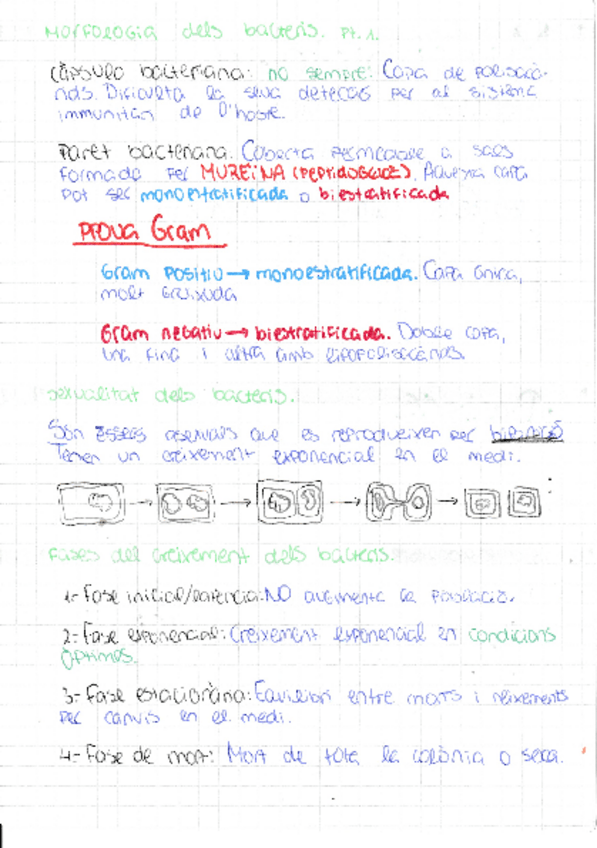 Morfologia dels bacteris. Pt. 1.
Càpsula bacteriana: no sempre. Capa de polisacà-
rids. Dificulta la seva detecció per al sistema
immunitari de l'hoste.
Paret bacteriana. Coberta permeable a sals
formada per MUREÏNA (PEPTIDOGLICÀ). Aquesta capa
pot ser monoestratificada o biestratificada
PROVA Gram
Gram positiu → monoestratificada. Capa única,
molt gruixuda
Gram negatiu → biestratificada. Doble capa,
una fina i altra amb lipopolisacàrids.
Sexualitat dels bacteris.
Són éssers asexuals que es reprodueixen per bipartició
Tenen un creixement exponencial en el medi.
Fases del creixement dels bacteris.
1- Fase inicial/latència: NO augmenta la població.
2- Fase exponencial: Creixement exponencial en condicions
òptimes.
3- Fase estacionària: Equilibri entre morts i naixements
per canvis en el medi.
4- Fase de mort: Mort de tota la colònia o soca.